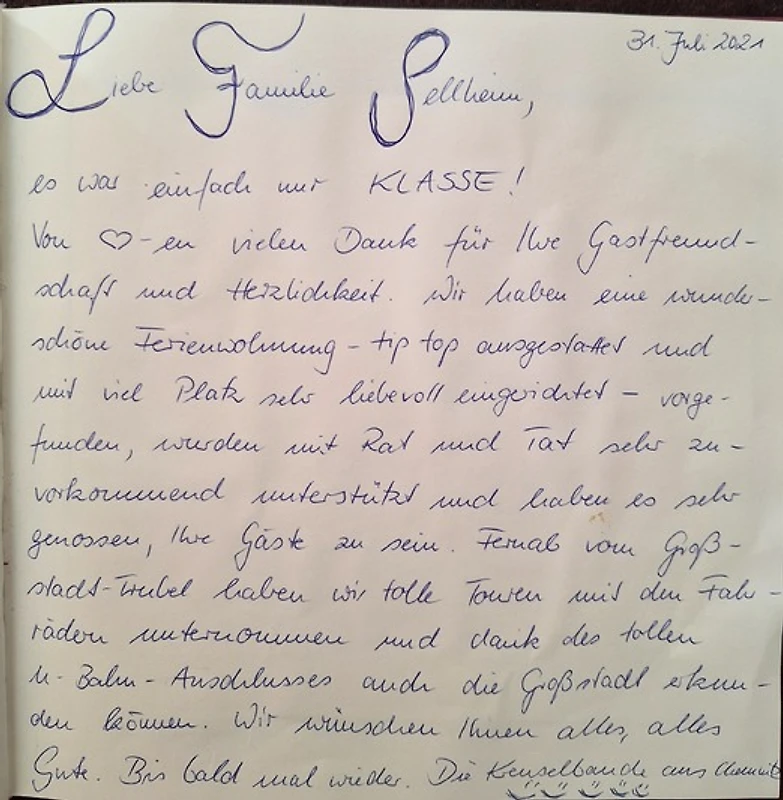 31. Juli 2021
Liebe Familie Sellheim,
es war einfach nur KLASSE!
Von ♡-en vielen Dank für Ihre Gastfreund-
schaft und Herzlichkeit. Wir haben eine wunder-
schöne Ferienwohnung - tip top ausgestattet und
mit viel Platz sehr liebevoll eingerichtet - vorge-
funden, wurden mit Rat und Tat sehr zu-
vorkommend unterstützt und haben es sehr
genossen, Ihre Gäste zu sein. Fernab vom Groß-
stadt-Trubel haben wir tolle Touren mit den Fahr-
rädern unternommen und dank des tollen
U-Bahn-Anschlusses auch die Großstadt erkun-
den können. Wir wünschen Ihnen alles, alles
Gute. Bis bald mal wieder. Die aus Chemnitz